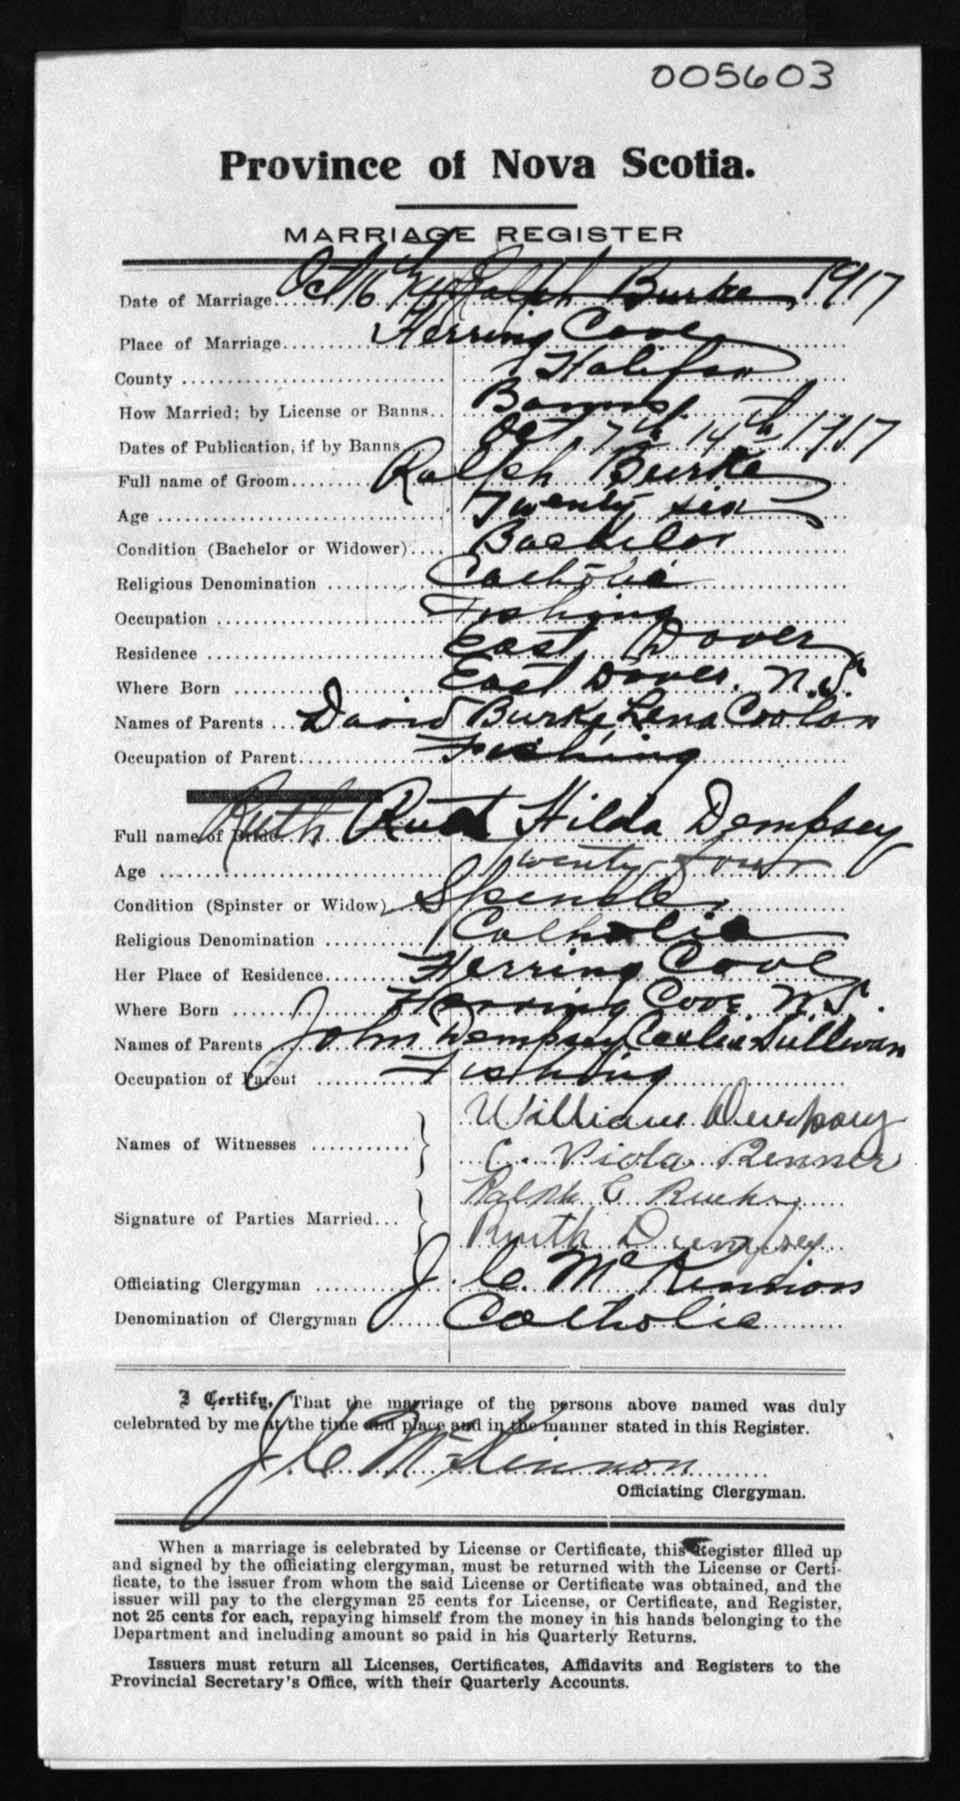 005603
Province of Nova Scotia.
MARRIAGE REGISTER
Date of Marriage Oct 16th Ralph Burke, 1917
Place of Marriage Herring Cove
County Halifax
How Married; by License or Banns Banns
Dates of Publication, if by Banns Oct, 7th 14th 1917
Full name of Groom Ralph Burke
Age Twenty six
Condition (Bachelor or Widower) Bachelor
Religious Denomination Catholic
Occupation Fishing
Residence East Dover
Where Born East Dover. N.S.
Names of Parents David Burke Lena Coolan
Occupation of Parent Fishing
Full name of Bride Ruth Hilda Dempsey
Age Twenty four
Condition (Spinster or Widow) Spinster
Religious Denomination Catholic
Her Place of Residence Herring Cove
Where Born Herring Cove N.S.
Names of Parents John Dempsey Sullivan
Occupation of Parent Fishing
Names of Witnesses William Dempsey
C. Viola Renner
Signature of Parties Married Ralph C Burke
Ruth Dempsey
Officiating Clergyman J. C. McKinnon
Denomination of Clergyman Catholic
I Certify, That the marriage of the persons above named was duly
celebrated by me at the time and place and in the manner stated in this Register.
J. C. McKinnon
Officiating Clergyman.
When a marriage is celebrated by License or Certificate, this Register filled up
and signed by the officiating clergyman, must be returned with the License or Certi-
ficate, to the issuer from whom the said License or Certificate was obtained, and the
issuer will pay to the clergyman 25 cents for License, or Certificate, and Register,
not 25 cents for each, repaying himself from the money in his hands belonging to the
Department and including amount so paid in his Quarterly Returns.
Issuers must return all Licenses, Certificates, Affidavits and Registers to the
Provincial Secretary's Office, with their Quarterly Accounts.